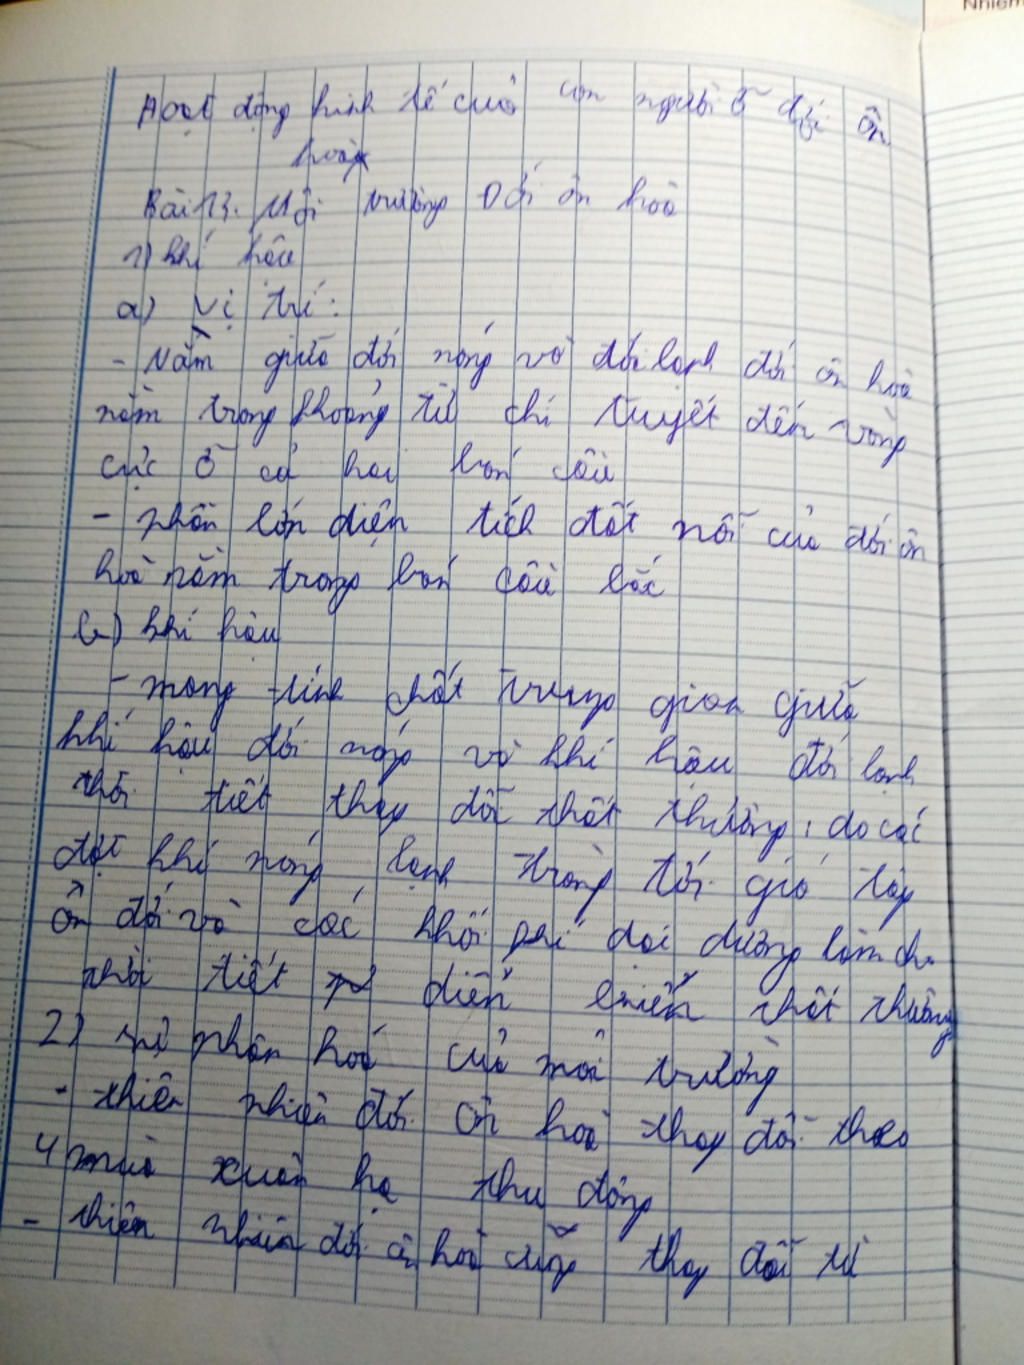 Nhiệm
Hoạt động kinh tế của con người ở đới ôn
hoà
Bài 13. Môi trường Đới ôn hoà
1) khí hậu
a) Vị trí:
- Nằm giữa đới nóng và đới lạnh đới ôn hoà
nằm trong khoảng từ chí tuyết đến vòng
cực ở cả hai bán cầu
- phần lớn diện tích đất nổi của đới ôn
hoà nằm trong bán cầu bắc
b) khí hậu
- mang tính chất trung gian giữa
khí hậu đới nóng và khí hậu đới lạnh
thời tiết thay đổi thất thường, do các
đợt khí nóng lạnh tràng tới gió tây
ôn đới và các khối khí đại dương làm cho
thời tiết diễn biến thất thường
2) sự phân hoá của môi trường
- thiên nhiên đới ôn hoà thay đổi theo
4 mùa xuân hạ thu đông
- thiên nhiên đới ôn hoà cũng thay đổi từ